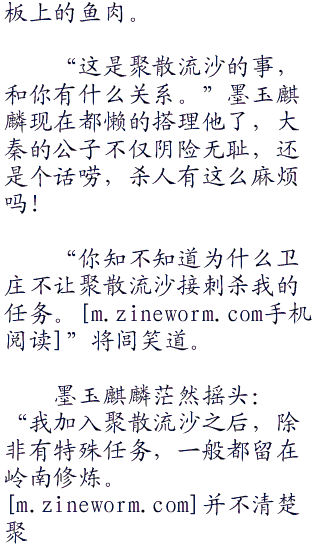 板上的鱼肉。
“这是聚散流沙的事，
和你有什么关系。”墨玉麒
麟现在都懒的搭理他了，大
秦的公子不仅阴险无耻，还
是个话唠，杀人有这么麻烦
吗！
“你知不知道为什么卫
庄不让聚散流沙接刺杀我的
任务。[m.zineworm.com手机
阅读]”将闾笑道。
墨玉麒麟茫然摇头：
“我加入聚散流沙之后，除
非有特殊任务，一般都留在
岭南修炼。
[m.zineworm.com]并不清楚
聚